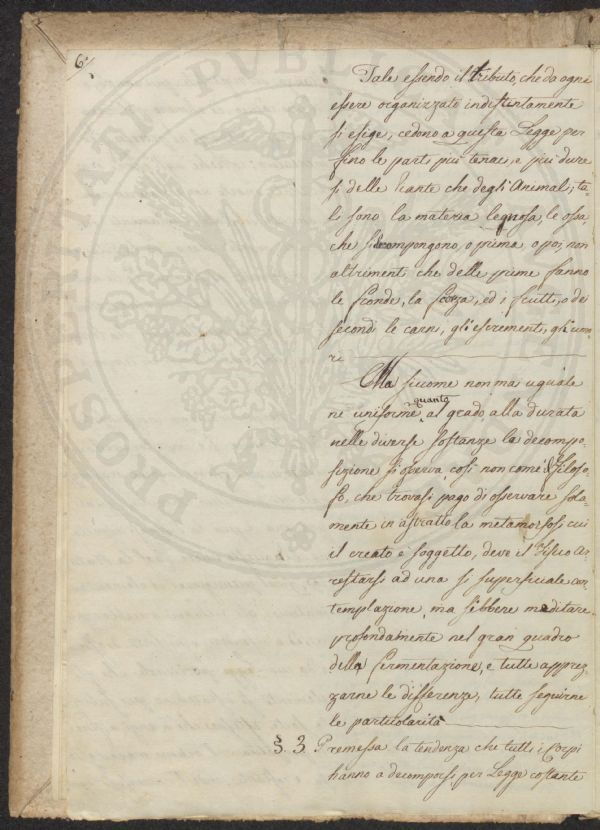 6/
Tale essendo il tributo, che da ogni
essere organizzato indistintamente
si esige, cedono a questa Legge per
fino le parti più tenaci, e più dure
sì delle Piante che degli Animali, ta-
li sono la materia legnosa, le ossa,
che si decompongono, o prima, o poi, non
altrimenti che delle prime fanno
le fronde, la scorza, ed i frutti, e dei
secondi le carni, gli escrementi, gli umo-
ri
Ma siccome non mai uguale
ne uniforme quanto al grado alla durata
nelle diverse sostanze la decompo-
sizione si osserva, così non come il Filoso-
fo, che trovasi pago di osservare sola-
mente in astratto la metamorfosi, cui
il creato è soggetto, deve il Fisico ar-
restarsi ad una sì superficiale con-
templazione, ma sibbene meditare
profondamente nel gran quadro
della fermentazione, e tutte apprez-
zarne le differenze, tutte seguirne
le particolarità
§. 3. Premessa la tendenza che tutti i Corpi
hanno a decomporsi per Legge costante
PUBLIC
PROSPERITATI